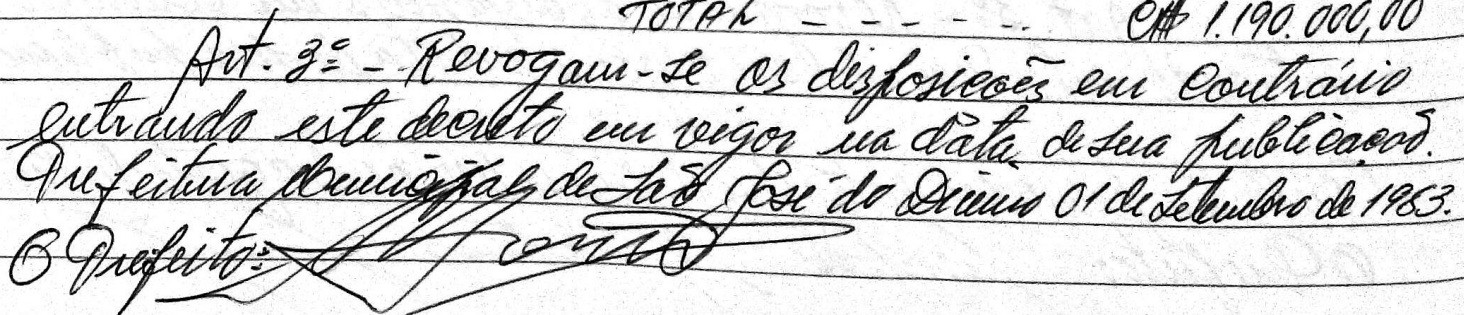 TOTAL - - - - - .. CR$ 1.190.000,00
Art. 3º - Revogam-se as disposicões em contrário
entrando este decreto em vigor na data de sua publicacão.
Prefeitura Municipal de São José do Divino 01 de setembro de 1983.
O Prefeito: